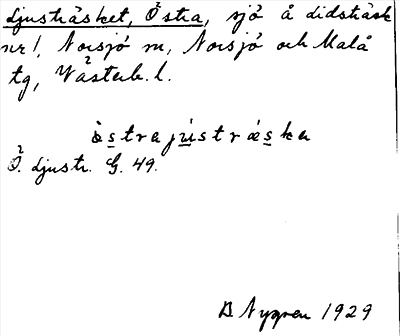 djusträsket, Östra, sjö å didsträsk
nr 1, Norsjö sn, Norsjö och Malå
tg, Västerb. l.
östrajustråska
Ö. djustr. G. 49.
B Nygren 1929